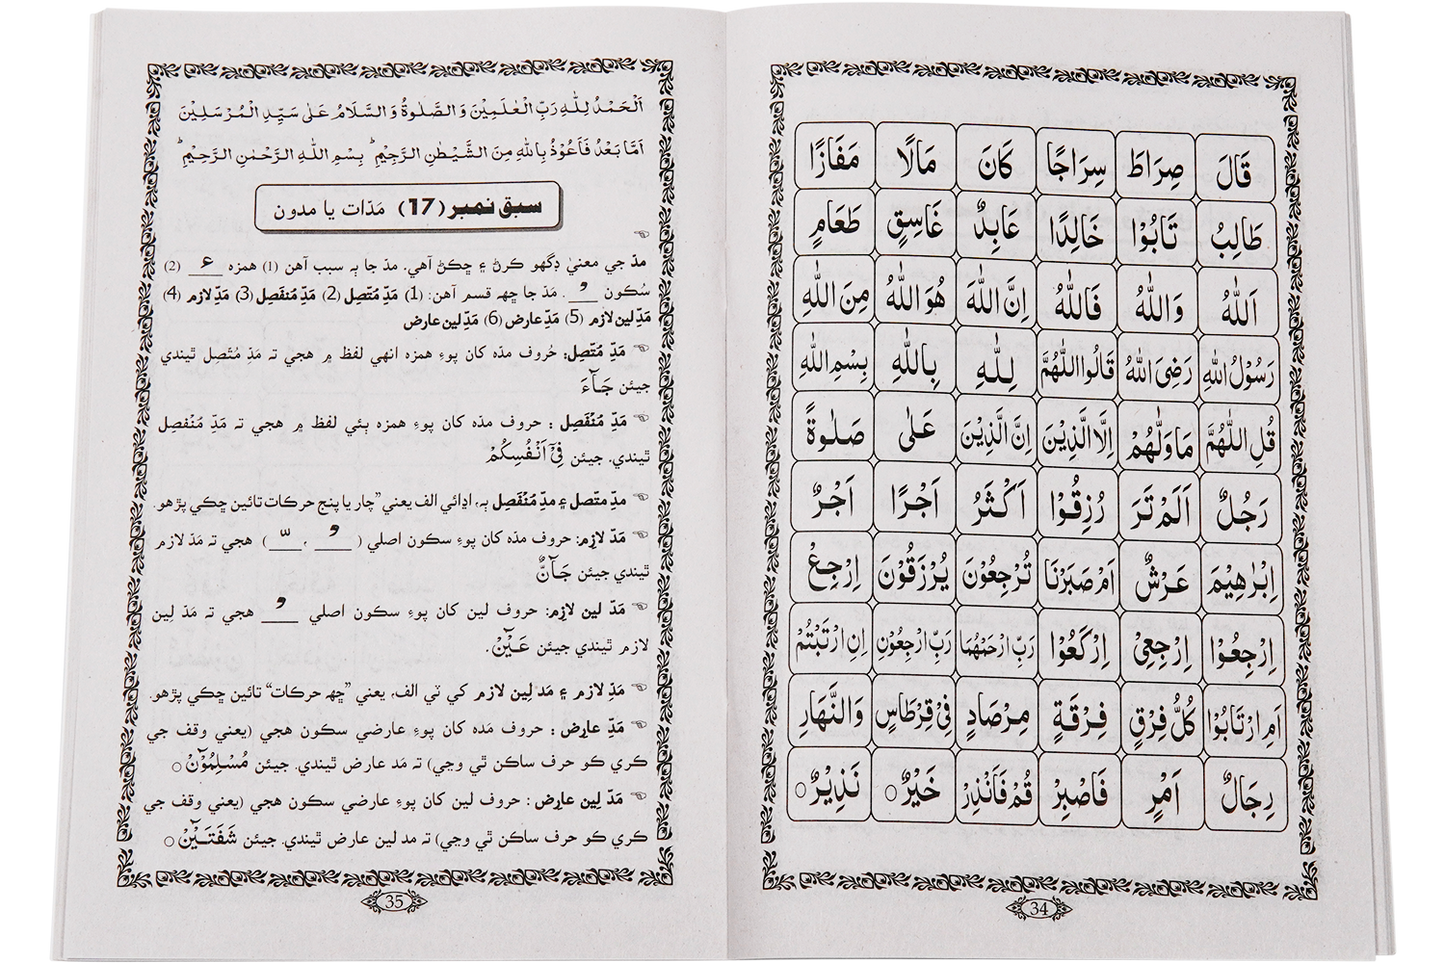 قَالَ صِرَاطَ سِرَاجًا كَانَ مَالًا مَفَازًا
طَالِبُ تَابُوْا خَالِدًا عَابِدٌ غَاسِقٍ طَعَامٍ
اَللّٰهُ وَاللّٰهُ فَاللّٰهُ اِنَّ اللّٰهَ هُوَ اللّٰهُ مِنَ اللّٰهِ
رَسُوْلُ اللّٰهِ رَضِیَ اللّٰهُ قَالُوا اللّٰهُمَّ لِلّٰهِ بِاللّٰهِ بِسْمِ اللّٰهِ
قُلِ اللّٰهُمَّ مَاوَلّٰهُمْ اِلَّا الَّذِیْنَ اِنَّ الَّذِیْنَ عَلٰی صَلٰوةً
رَجُلٌ اَلَمْ تَرَ رُزِقُوْا اَكْثَرُ اَجْرًا اَجْرٌ
اِبْرٰهِیْمَ عَرْشٌ اَمْ صَبَرْنَا تُرْجِعُوْنَ یُرْزَقُوْنَ اِرْجِعْ
اِرْجِعُوْا اِرْجِعِیْ اِرْكَعُوْا رَبِّ ارْحَمْهُمَا رَبِّ ارْجِعُوْنِ اِنِ ارْتَبْتُمْ
اَمِ ارْتَابُوْا كُلُّ فِرْقٍ فِرْقَةٍ مِرْصَادٍ فِیْ قِرْطَاسٍ وَالنَّهَارِ
رِجَالٌ اَمْرٍ فَاصْبِرْ قُمْ فَاَنْذِرْ خَیْرٌ ○ نَذِیْرٌ ○
34
اَلْحَمْدُ لِلّٰهِ رَبِّ الْعٰلَمِیْنَ وَالصَّلٰوةُ وَالسَّلَامُ عَلٰی سَیِّدِ الْمُرْسَلِیْنَ
اَمَّا بَعْدُ فَاَعُوْذُ بِاللّٰهِ مِنَ الشَّیْطٰنِ الرَّجِیْمِ ؕ بِسْمِ اللّٰهِ الرَّحْمٰنِ الرَّحِیْمِ ؕ
سبق نمبر (17) مَدّات يا مدون
مدّ جي معنيٰ ڊگھو ڪرڻ ۽ ڇڪڻ آهي. مدّ جا ٻہ سبب آهن (1) همزه ء (2)
سُڪون ۠. مَدّ جا ڇھہ قسم آهن: (1) مَدِّ مُتّصِل (2) مَدِّ مُنفَصِل (3) مَدِّ لازم (4)
مَدِّ لين لازم (5) مَدِّ عارض (6) مَدِّ لين عارض
مَدِّ مُتّصِل: حُروف مدّه کان پوءِ همزه انهي لفظ ۾ هجي تہ مَدِّ مُتّصِل ٿيندي
جيئن جَآءَ
مَدِّ مُنْفَصِل : حروف مدّه کان پوءِ همزه ٻئي لفظ ۾ هجي تہ مَدِّ مُنْفصِل
ٿيندي. جيئن فِیْۤ اَنْفُسِكُمْ
مدِّ متّصل ۽ مدِّ مُنْفَصِل ٻہ، اڍائي الف يعني ”چار يا پنج حرڪات تائين ڇڪي پڙهو.
مَدِّ لازِم: حروف مدّه کان پوءِ سڪون اصلي ( ۠ ، ّ ) هجي تہ مَدّ لازم
ٿيندي جيئن جَآنٌّ
مَدّ لين لازِم: حروف لين کان پوءِ سڪون اصلي ۠ هجي تہ مَدّ لِين
لازم ٿيندي جيئن عَیْٓنْ.
مَدِّ لازم ۽ مَد لِين لازم کي ٽي الف، يعني ”ڇھہ حرڪات“ تائين ڇڪي پڙهو.
مَدِّ عارِض : حروف مَدّه کان پوءِ عارضي سڪون هجي (يعني وقف جي
ڪري ڪو حرف ساڪن ٿي وڃي) تہ مَد عارض ٿيندي. جيئن مُسْلِمُوْنَ ○
مَدِّ لِين عارِض : حروف لين کان پوءِ عارضي سڪون هجي (يعني وقف جي
ڪري ڪو حرف ساڪن ٿي وڃي) تہ مد لين عارض ٿيندي. جيئن شَفَتَیْنِ ○
35